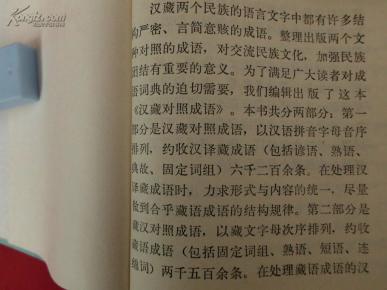 汉藏两个民族的语言文字中都有许多结
构严密、言简意赅的成语。整理出版两个文
种对照的成语，对交流民族文化，加强民族
团结有重要的意义。为了满足广大读者对成
语词典的迫切需要，我们编辑出版了这本
《汉藏对照成语》。本书共分两部分：第一
部分是汉藏对照成语，以汉语拼音字母音序
排列，约收汉译藏成语（包括谚语、熟语、
典故、固定词组）六千二百余条。在处理汉
译藏成语时，力求形式与内容的统一，尽量
做到合乎藏语成语的结构规律。第二部分是
藏汉对照成语，以藏文字母次序排列，约收
藏语成语（包括固定词组、熟语、短语、连
绵词）两千五百余条。在处理藏语成语的汉